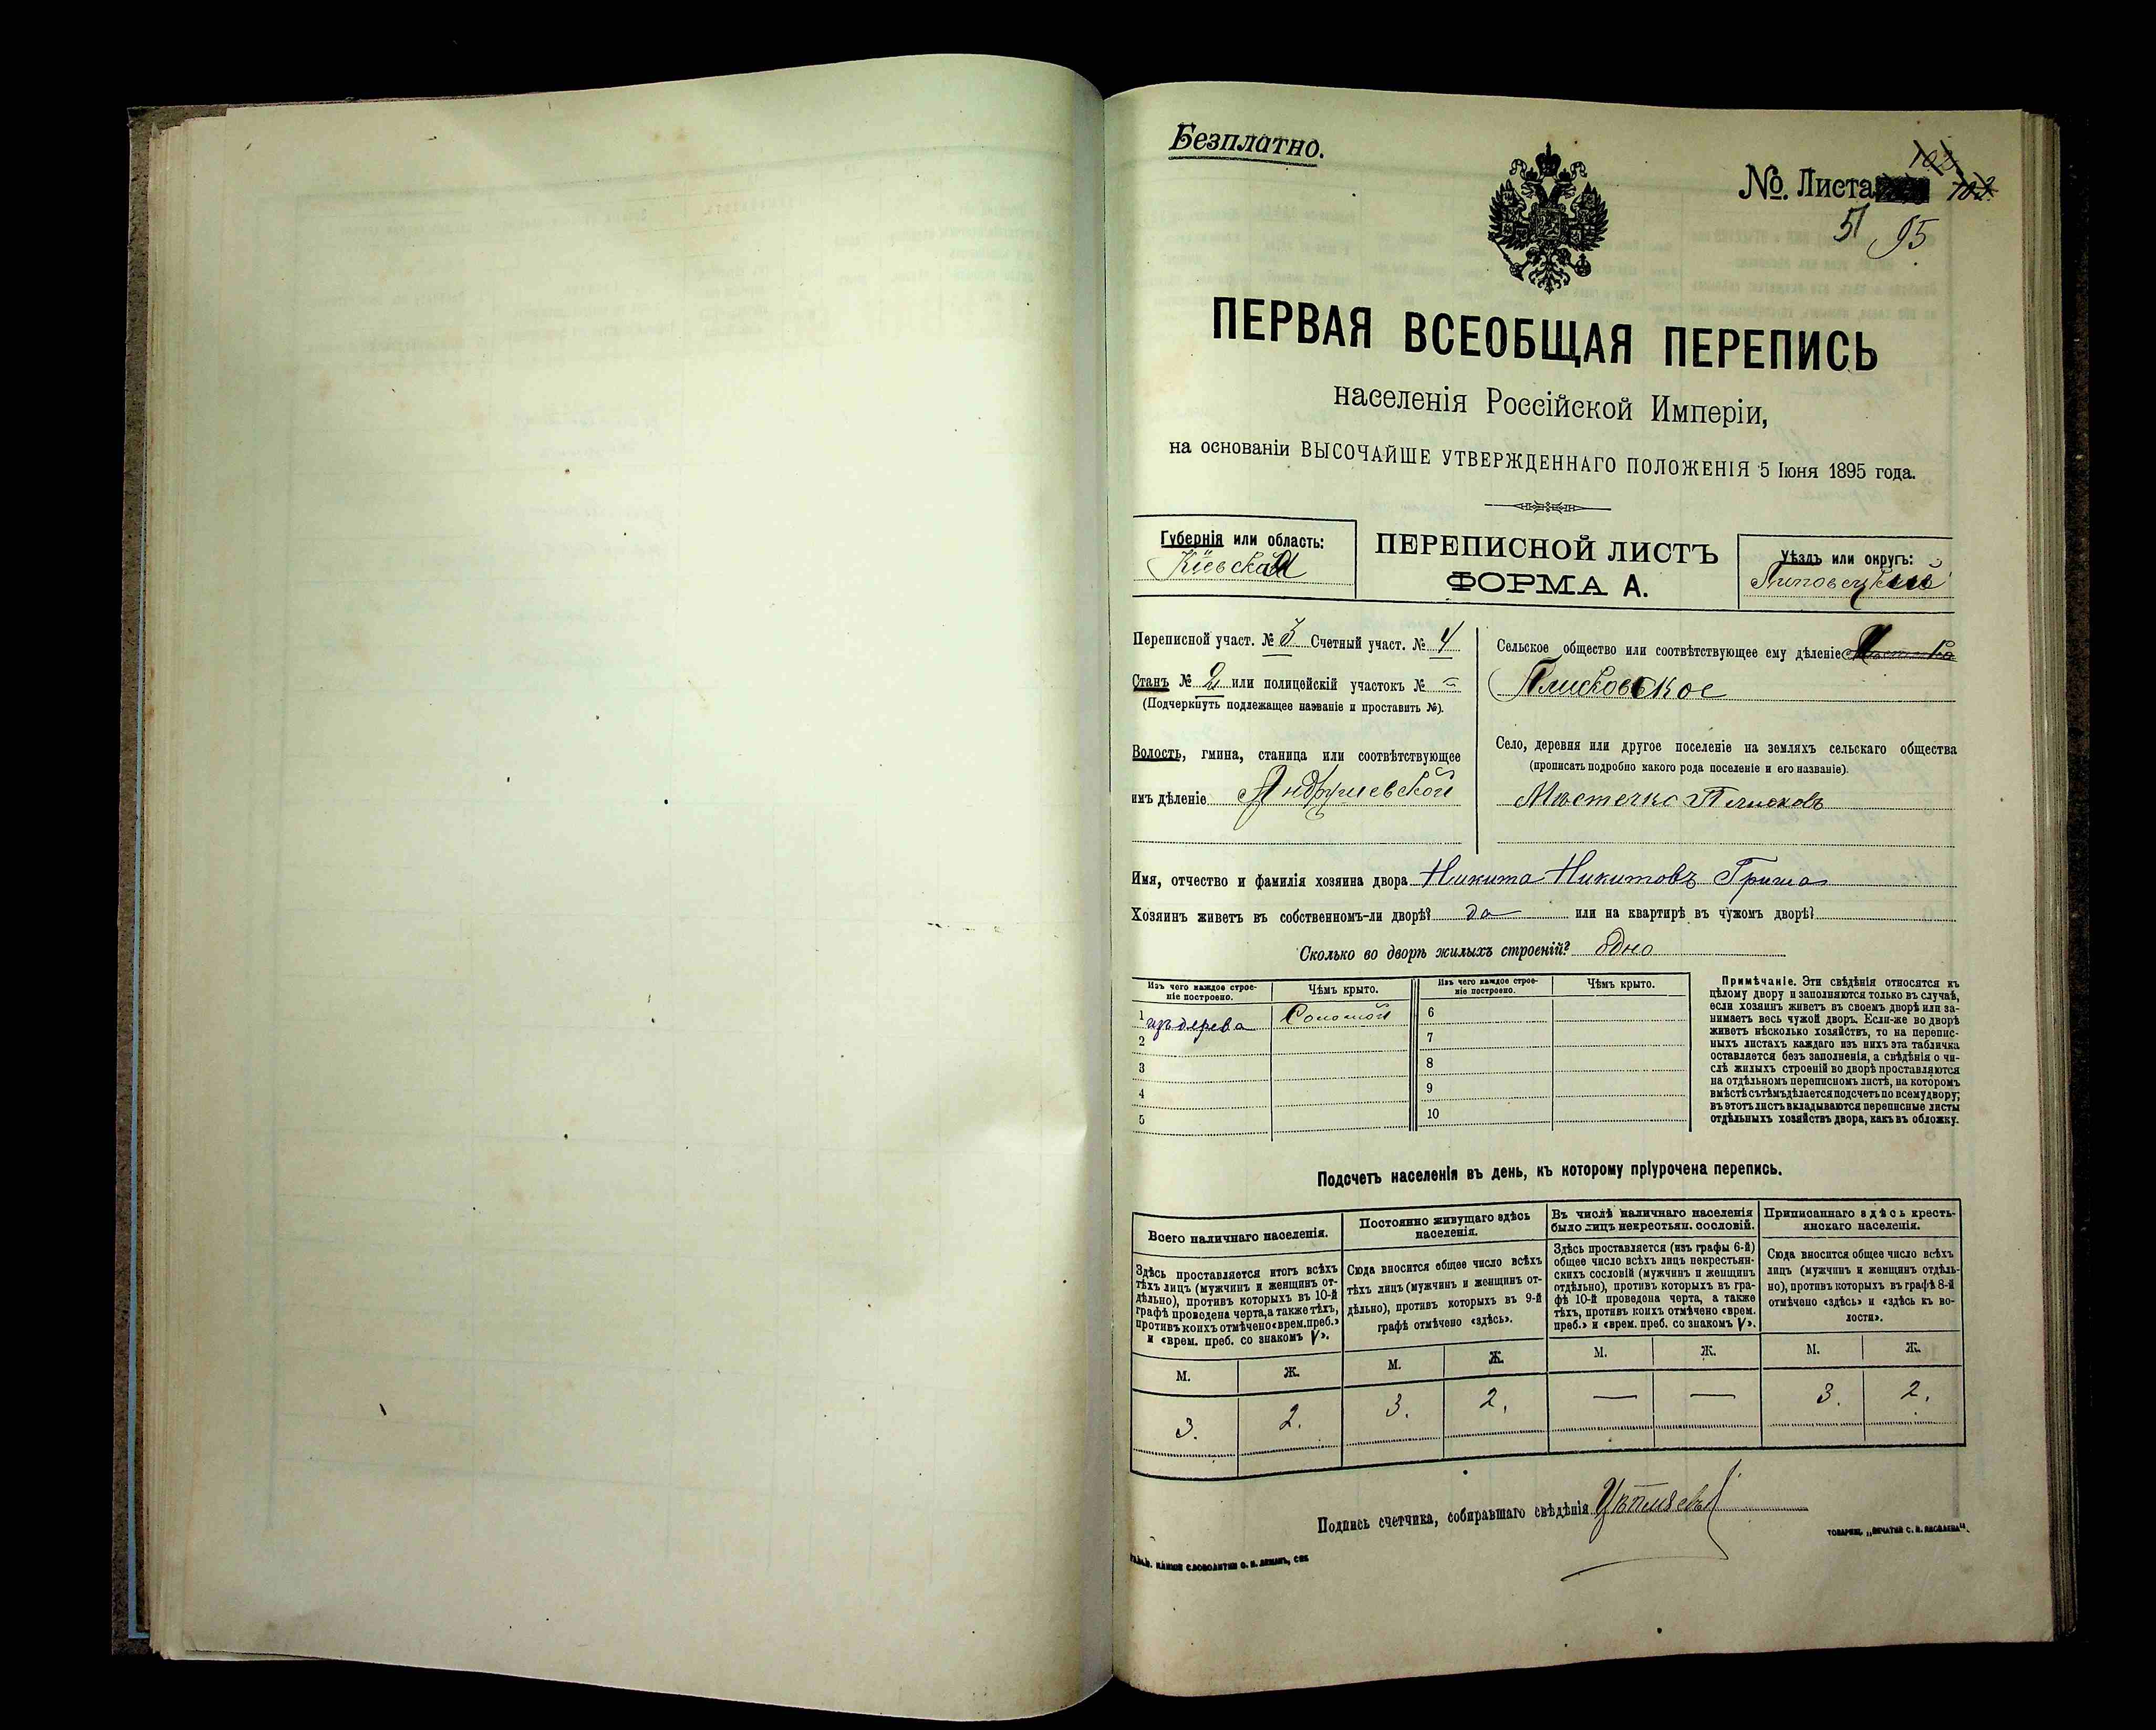 Безплатно.
№. Листа 102
102
51 95
ПЕРВАЯ ВСЕОБЩАЯ ПЕРЕПИСЬ
населенія Россійской Имперіи,
на основаніи ВЫСОЧАЙШЕ УТВЕРЖДЕННАГО ПОЛОЖЕНІЯ 5 Іюня 1895 года.
Губернія или область:
Кіевская
ПЕРЕПИСНОЙ ЛИСТЪ
ФОРМА А.
Уѣздъ или округъ:
Липовецкій
Переписной участ. № 3 Счетный участ. № 4
Станъ № 2 или полицейскій участокъ №
(Подчеркнуть подлежащее названіе и проставить №).
Волость, гмина, станица или соотвѣтствующее
имъ дѣленіе Андрушевской
Сельское общество или соотвѣтствующее ему дѣленіе
Плисковское
Село, деревня или другое поселеніе на земляхъ сельскаго общества
(прописать подробно какого рода поселеніе и его названіе).
Мѣстечко Плисковъ
Имя, отчество и фамилія хозяина двора Никита Никитовъ Гриша
Хозяинъ живетъ въ собственномъ-ли дворѣ? да или на квартирѣ въ чужомъ дворѣ?
Сколько во дворѣ жилыхъ строеній? одно
Изъ чего каждое строе-
ніе построено.
Чѣмъ крыто.
Изъ чего каждое строе-
ніе построено.
Чѣмъ крыто.
1 изъ дерева Соломой 6
2 7
3 8
4 9
5 10
Примѣчаніе. Эти свѣдѣнія относятся къ
цѣлому двору и заполняются только въ случаѣ,
если хозяинъ живетъ въ своемъ дворѣ или за-
нимаетъ весь чужой дворъ. Если-же во дворѣ
живетъ нѣсколько хозяйствъ, то на перепис-
ныхъ листахъ каждаго изъ нихъ эта табличка
оставляется безъ заполненія, а свѣдѣнія о чи-
слѣ жилыхъ строеній во дворѣ проставляются
на отдѣльномъ переписномъ листѣ, на которомъ
вмѣстѣ съ тѣмъ дѣлается подсчетъ по всему двору;
въ этотъ листъ вкладываются переписные листы
отдѣльныхъ хозяйствъ двора, какъ въ обложку.
Подсчетъ населенія въ день, къ которому пріурочена перепись.
Всего наличнаго населенія.
Здѣсь проставляется итогъ всѣхъ
тѣхъ лицъ (мужчинъ и женщинъ от-
дѣльно), противъ которыхъ въ 10-й
графѣ проведена черта, а также тѣхъ,
противъ коихъ отмѣчено «врем. преб.»
и «врем. преб. со знакомъ V».
Постоянно живущаго здѣсь
населенія.
Сюда вносится общее число всѣхъ
тѣхъ лицъ (мужчинъ и женщинъ от-
дѣльно), противъ которыхъ въ 9-й
графѣ отмѣчено «здѣсь».
Въ числѣ наличнаго населенія
было лицъ некрестьян. сословій.
Здѣсь проставляется (изъ графы 6-й)
общее число всѣхъ лицъ некрестьян-
скихъ сословій (мужчинъ и женщинъ
отдѣльно), противъ которыхъ въ гра-
фѣ 10-й проведена черта, а также
тѣхъ, противъ коихъ отмѣчено «врем.
преб.» и «врем. преб. со знакомъ V».
Приписаннаго здѣсь кресть-
янскаго населенія.
Сюда вносится общее число всѣхъ
лицъ (мужчинъ и женщинъ отдѣль-
но), противъ которыхъ въ графѣ 8-й
отмѣчено «здѣсь» и «здѣсь къ во-
лости».
М. Ж. М. Ж. М. Ж. М. Ж.
3. 2. 3. 2. — — 3. 2.
Подпись счетчика, собиравшаго свѣдѣнія
ТОВАРИЩ. „ПЕЧАТНЯ С. П. ЯКОВЛЕВА“.
СЛОВОЛИТНИ О. И. ЛЕМАНЪ, СПБ